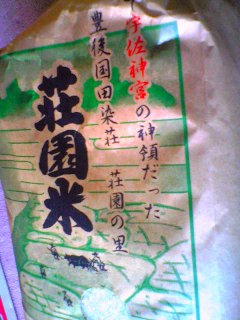 宇佐神宮の神領だった
豊後国田染荘　荘園の里
荘園米